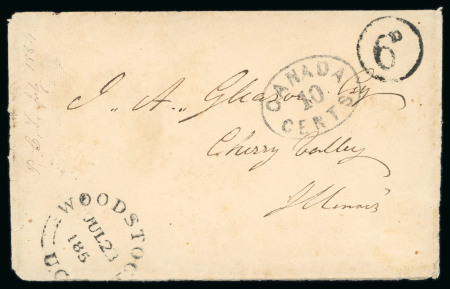 6D
CANADA
10
CENTS
J. A. Gleason Esq
Cherry Valley
Illinois
WOODSTOCK
JUL 23
185
U.C.